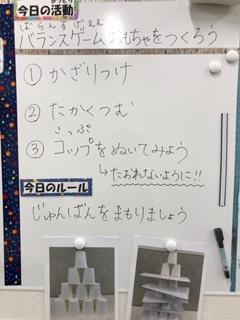 今日の活動
ばらんすげえむ
バランスゲームおもちゃをつくろう
① かざりつけ
② たかくつむ
こっぷ
③ コップをぬいてみよう
↳ たおれないように!!
今日のルール
じゅんばんをまもりましょう